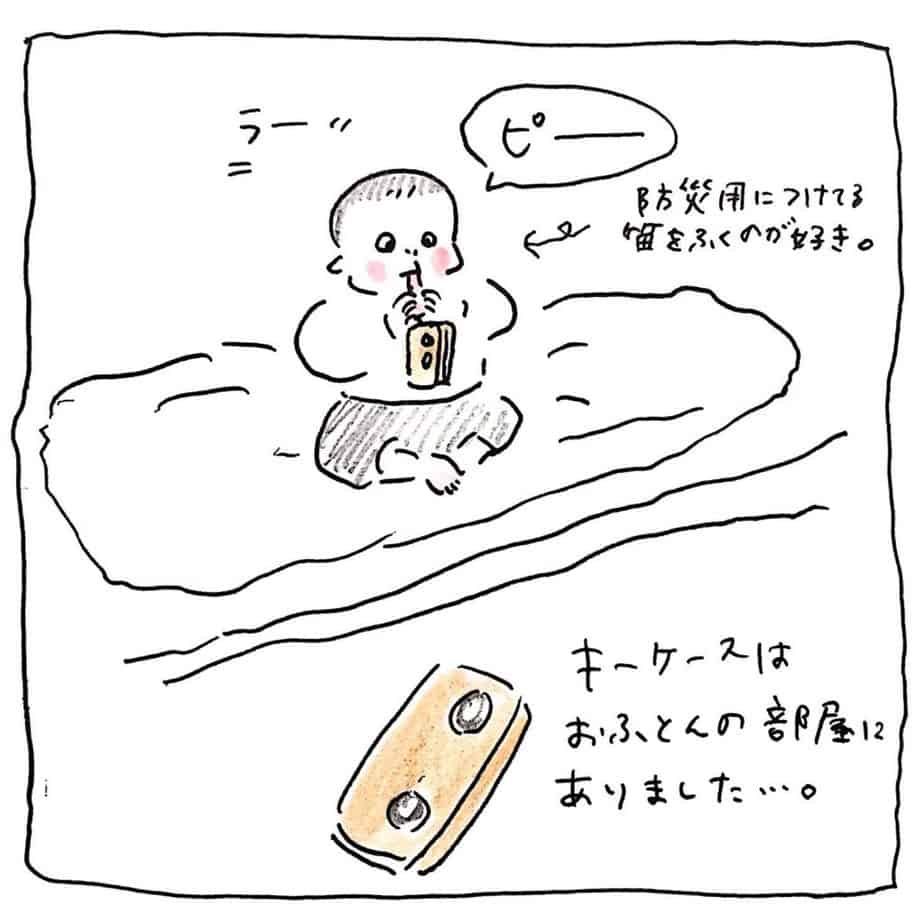 ピーーー
ラー〃
防災用につけてる
笛をふくのが好き。
キーケースは
おふとんの部屋に
ありました…。